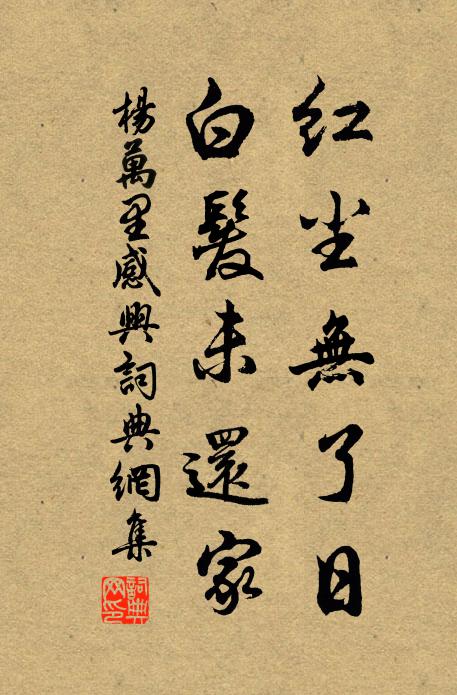 红尘無了日
白髮未還家
楊萬里感興詞典網集
詞典
网印